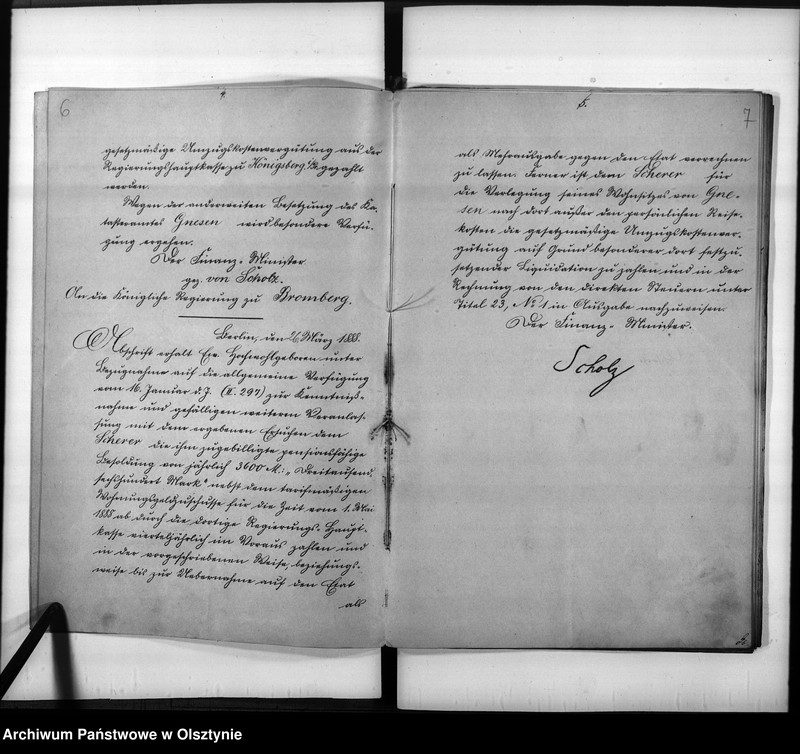 6
4.
gesetzmäßige Umzugskostenvergütung aus der
Regierungshauptkasse zu Königsberg i/Pr gezahlt
werden.
Wegen der anderweiten Besetzung des Ka-
tasteramtes Gnesen wird besondere Verfü-
gung ergehen.
Der Finanz-Minister
gez. von Scholz.
An die Königliche Regierung zu Bromberg.
Berlin, den 26. März 1888.
Abschrift erhält Ew. Hochwohlgeboren unter
Bezugnahme auf die allgemeine Verfügung
vom 16. Januar d. J. (II. 297) zur Kenntniß-
nahme und gefälligen weiteren Veranlas-
sung mit dem ergebenen Ersuchen dem
Scherer die ihm zugebilligte pensionsfähige
Besoldung von jährlich 3600 M.: „Dreitausend
sechshundert Mark“ nebst dem tarifmäßigen
Wohnungsgeldzuschusse für die Zeit vom 1. Mai
1888 ab durch die dortige Regierungs-Haupt-
kasse vierteljährlich im Voraus zahlen und
in der vorgeschriebenen Weise, beziehungs-
weise bis zur Uebernahme auf den Etat
als
5.
7
als Mehrausgabe gegen den Etat verrechnen
zu lassen. Ferner ist dem Scherer für
die Verlegung seines Wohnsitzes von Gne-
sen nach dort außer den persönlichen Reise-
kosten die gesetzmäßige Umzugskostenver-
gütung auf Grund besonderer dort festzu-
setzender Liquidation zu zahlen und in der
Rechnung von den direkten Steuern unter
Titel 23, No 1 in Ausgabe nachzuweisen.
Der Finanz-Minister.
Scholz
Archiwum Państwowe w Olsztynie